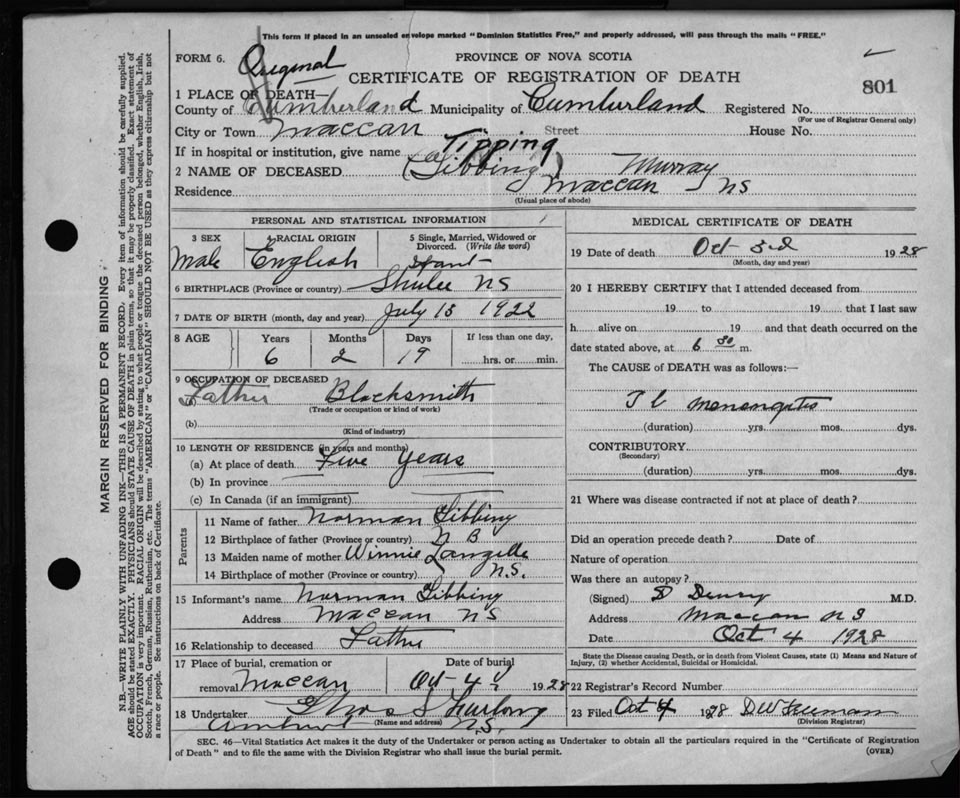 This form if placed in an unsealed envelope marked "Dominion Statistics Free," and properly addressed, will pass through the mails "FREE."
FORM 6.
Original
PROVINCE OF NOVA SCOTIA
CERTIFICATE OF REGISTRATION OF DEATH
801
1 PLACE OF DEATH—
County of Cumberland Municipality of Cumberland Registered No.
(For use of Registrar General only)
City or Town Maccan Street House No.
If in hospital or institution, give name
Tipping
2 NAME OF DECEASED (Tibbing) Murray
Residence Maccan NS
(Usual place of abode)
PERSONAL AND STATISTICAL INFORMATION
3 SEX 4 RACIAL ORIGIN 5 Single, Married, Widowed or Divorced. (Write the word)
Male English
6 BIRTHPLACE (Province or country) Shulee NS
7 DATE OF BIRTH (month, day and year) July 15 1922
8 AGE Years Months Days If less than one day,
6 2 19 hrs. or min.
9 OCCUPATION OF DECEASED
Father Blacksmith
(Trade or occupation or kind of work)
(b)
(Kind of industry)
10 LENGTH OF RESIDENCE (in years and months)
(a) At place of death Five years
(b) In province
(c) In Canada (if an immigrant)
Parents
11 Name of father Norman Tibbing
12 Birthplace of father (Province or country) N B
13 Maiden name of mother Winnie Langille
14 Birthplace of mother (Province or country) N.S.
15 Informant's name Norman Tibbing
Address Maccan NS
16 Relationship to deceased Father
17 Place of burial, cremation or Date of burial
removal Maccan Oct 4 1928
18 Undertaker Furlong
(Name and address)
Amherst N.S.
MEDICAL CERTIFICATE OF DEATH
19 Date of death Oct 3rd 1928
(Month, day and year)
20 I HEREBY CERTIFY that I attended deceased from
19 to 19 that I last saw
h alive on 19 and that death occurred on the
date stated above, at 6 30 m.
The CAUSE of DEATH was as follows:—
(duration) yrs. mos. dys.
CONTRIBUTORY
(Secondary)
(duration) yrs. mos. dys.
21 Where was disease contracted if not at place of death?
Did an operation precede death? Date of
Nature of operation
Was there an autopsy?
(Signed) M.D.
Address Maccan NS
Date Oct 4 1928
State the Disease causing Death, or in death from Violent Causes, state (1) Means and Nature of
Injury, (2) whether Accidental, Suicidal or Homicidal.
22 Registrar's Record Number
23 Filed Oct 4 1928 DW Freeman
(Division Registrar)
SEC. 46—Vital Statistics Act makes it the duty of the Undertaker or person acting as Undertaker to obtain all the particulars required in the "Certificate of Registration
of Death" and to file the same with the Division Registrar who shall issue the burial permit.
(OVER)
MARGIN RESERVED FOR BINDING
N.B.—WRITE PLAINLY WITH UNFADING INK—THIS IS A PERMANENT RECORD. Every item of information should be carefully supplied.
AGE should be stated EXACTLY. PHYSICIANS should STATE CAUSE OF DEATH in plain terms, so that it may be properly classified. Exact statement of
OCCUPATION is very important. RACIAL ORIGIN will be described by stating to what people or tongue the deceased person belonged, whether English, Irish,
Scotch, French, German, Russian, Ruthenian, etc. The terms "AMERICAN" or "CANADIAN" SHOULD NOT BE USED as they express citizenship but not
a race or people. See instructions on back of Certificate.